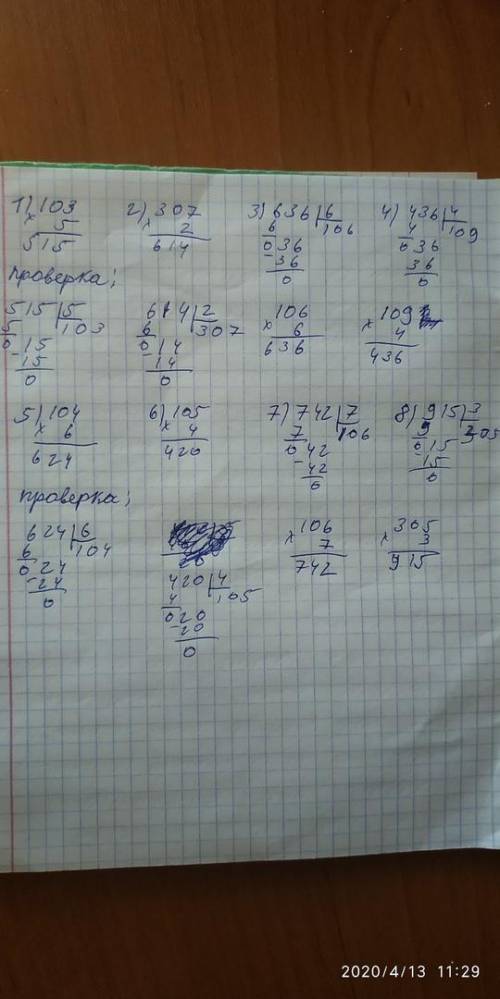 1) 103 2) 307 3) 636 | 6 4) 436 | 4
× 5 × 2 6 106 4 109
515 614 036 036
-36 36
0 0
проверка;
515 | 5 614 | 2 106 109
5 103 6 307 × 6 × 4
0 -15 014 636 436
15 -14
0 0
5) 104 6) 105 7) 742 | 7 8) 915 | 3
× 6 × 4 7 106 9 305
624 420 042 015
-42 -15
0 0
проверка;
624 | 6 106 305
6 104 × 7 × 3
024 742 915
-24
0
420 | 4
4 105
020
-20
0
2020/4/13 11:29